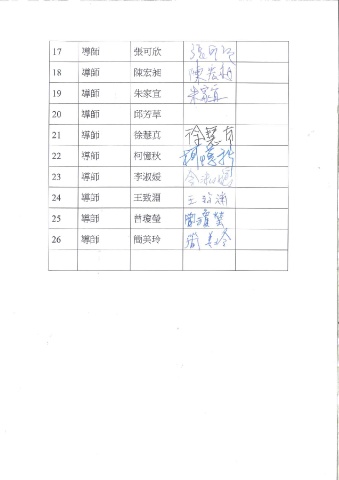 17 導師 張可欣 張可欣
18 導師 陳宏昶 陳宏昶
19 導師 朱家宜 朱家宜
20 導師 邱芳草
21 導師 徐慧真 徐慧
22 導師 柯憶秋 柯憶秋
23 導師 李淑媛 李淑媛
24 導師 王致淵 王致淵
25 導師 曾瓊瑩 瓊瑩
26 導師 簡英玲